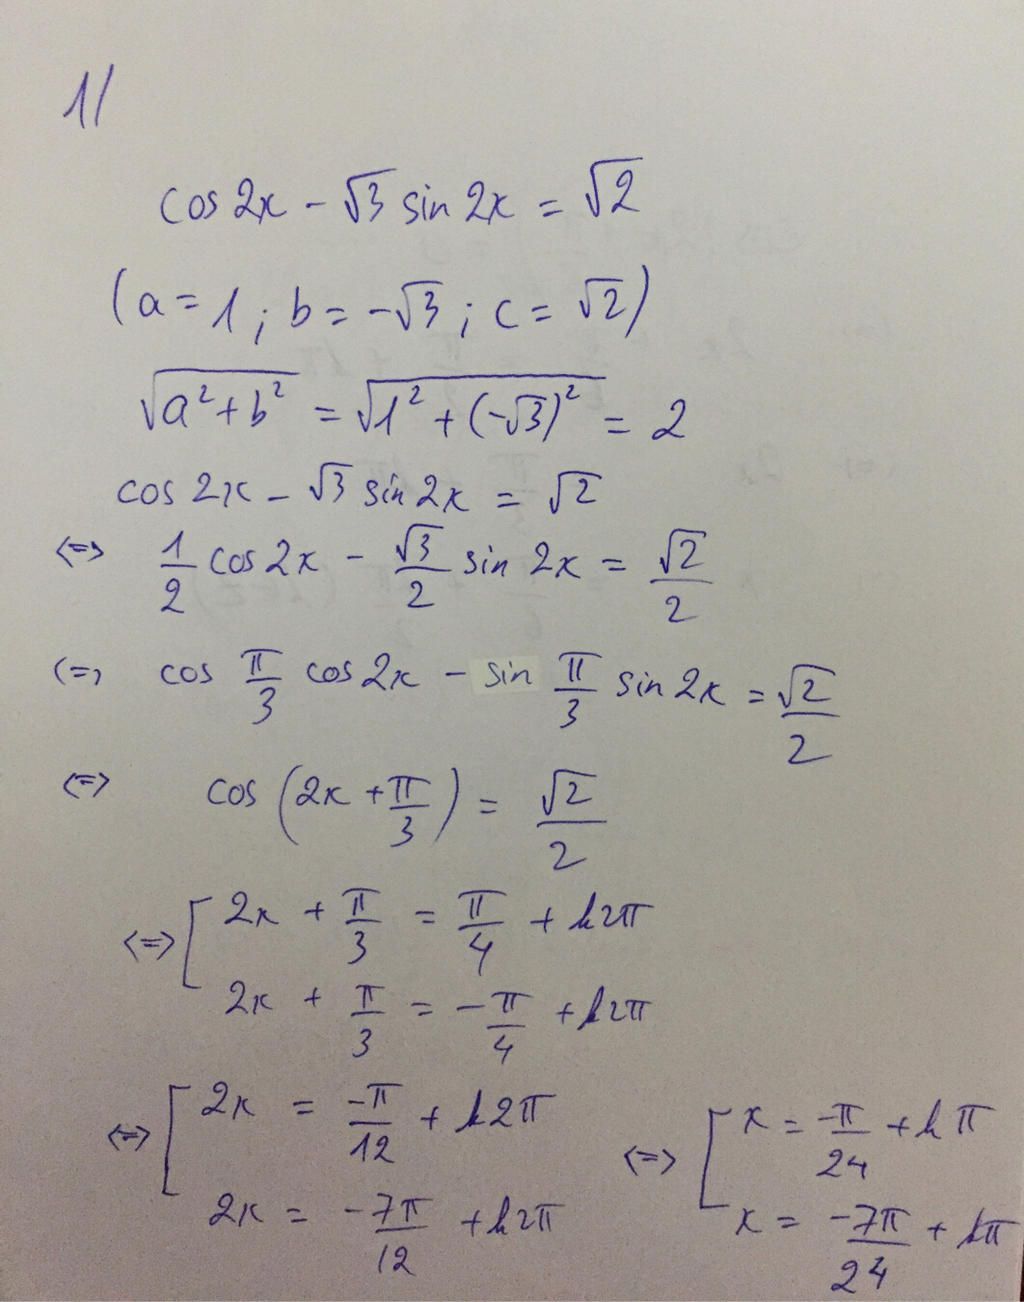 1/
cos 2x - √3 sin 2x = √2
(a = 1 ; b = -√3 ; c = √2)
√(a² + b²) = √(1² + (-√3)²) = 2
cos 2x - √3 sin 2x = √2
<=> 1/2 cos 2x - √3/2 sin 2x = √2/2
<=> cos π/3 cos 2x - sin π/3 sin 2x = √2/2
<=> cos (2x + π/3) = √2/2
<=> [ 2x + π/3 = π/4 + k2π
2x + π/3 = -π/4 + k2π
<=> [ 2x = -π/12 + k2π
2x = -7π/12 + k2π
<=> [ x = -π/24 + kπ
x = -7π/24 + kπ